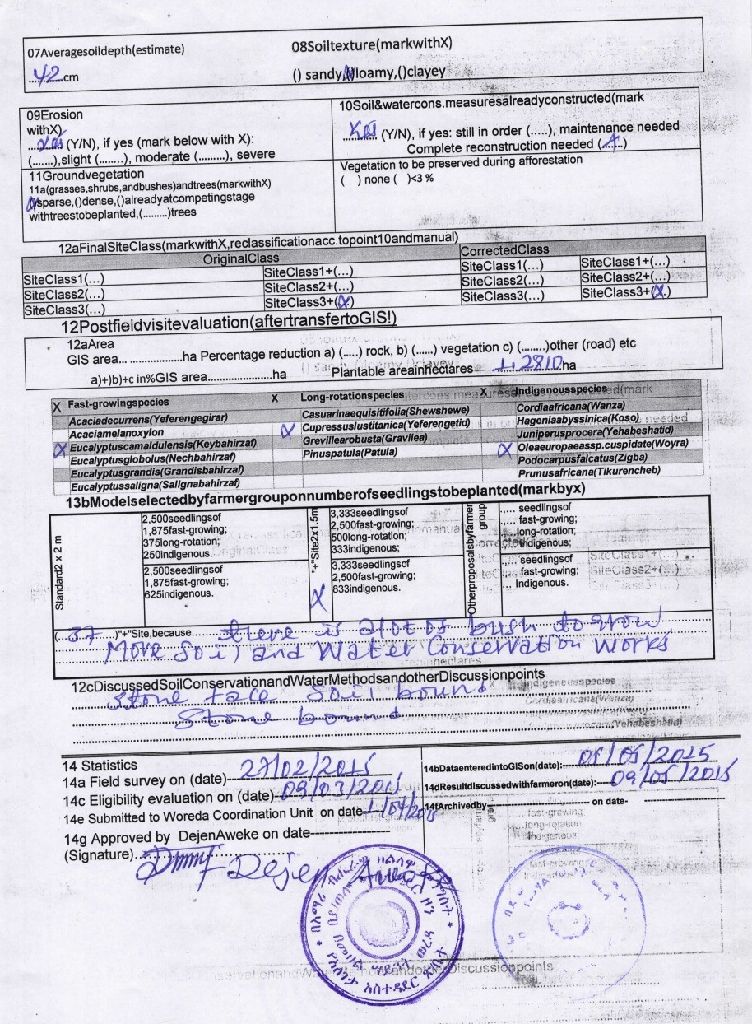 07Averagesoildepth(estimate)
42.cm
08Soiltexture(markwithX)
() sandy,()loamy,()clayey
09Erosion
withX)
(Y/N), if yes (mark below with X):
(.......),slight (........), moderate (.........), severe
10Soil&watercons.measuresalreadyconstructed(mark
(Y/N), if yes: still in order (.....), maintenance needed
Complete reconstruction needed (
11Groundvegetation
11a(grasses,shrubs,andbushes)andtrees(markwithX)
sparse,()dense,()alreadyatcompetingstage
withtreestobeplanted,(.........)trees
Vegetation to be preserved during afforestation
( ) none ( )<3 %
12aFinalSiteClass(markwithX,reclassificationacc.topoint10andmanual)
OriginalClass CorrectedClass
SiteClass1(...) SiteClass1+(...) SiteClass1(...) SiteClass1+(...)
SiteClass2(...) SiteClass2+(...) SiteClass2(...) SiteClass2+(...)
SiteClass3(...) SiteClass3+(X) SiteClass3(...) SiteClass3+(X.)
12Postfieldvisitevaluation(aftertransfertoGIS!)
12aArea
GIS area...............ha Percentage reduction a) (.....) rock, b) (......) vegetation c) (........)other (road) etc
a)+)b)+c in%GIS area.....................ha Plantable areainhectares 1.2810 ha
X Fast-growingspecies X Long-rotationspecies X Indigenousspecies
Acaciedecurrens(Yeferengegirar) Casuarinaequisitifolia(Shewshewe) Cordiaafricana(Wanza)
Acaciamelanoxylon X Cupressuslustitanica(Yeferengetid) Hageniaabyssinica(Koso)
X Eucalyptuscamaldulensis(Keybahirzaf) Grevillearobusta(Gravilea) Juniperusprocera(Yehabeshatid)
Eucalyptusglobolus(Nechbahirzaf) Pinuspatula(Patula) X Oleaeuropaeassp.cuspidate(Woyra)
Eucalyptusgrandis(Grandisbahirzaf) Podocarpusfalcatus(Zigba)
Eucalyptussaligna(Salignabahirzaf) Prunusafricana(Tikurencheb)
13bModelselectedbyfarmergrouponnumberofseedlingstobeplanted(markbyx)
Standard2 x 2 m
2,500seedlingsof
1,875fast-growing;
375long-rotation;
250indigenous.
2.500seedlingsof
1,875fast-growing;
625indigenous.
"+"Site2x1.5m
3,333seedlingsof
2,500fast-growing;
500long-rotation;
333indigenous.
X
3,333seedlingsof
2,500fast-growing;
833indigenous.
Otherproposalsbyfarmer
group
.... seedlingsof
.... fast-growing;
.... long-rotation;
.... indigenous;
.... seedlingsof
.... fast-growing;
.... Indigenous.
(...37...)"+"Site,because there is alot of bush to grow
More Soil and Water Conservation works
12cDiscussedSoilConservationandWaterMethodsandotherDiscussionpoints
Stone face Soil bound
Stone bound
14 Statistics
14a Field survey on (date) 27/02/2015
14bDataenteredintoGISon(date):
14c Eligibility evaluation on (date) 09/03/2015
14dResultdiscussedwithfarmeron(date): 09/05/2015
14e Submitted to Woreda Coordination Unit on date
14fArchivedby on date-
14g Approved by DejenAweke on date
(Signature)
Dejen